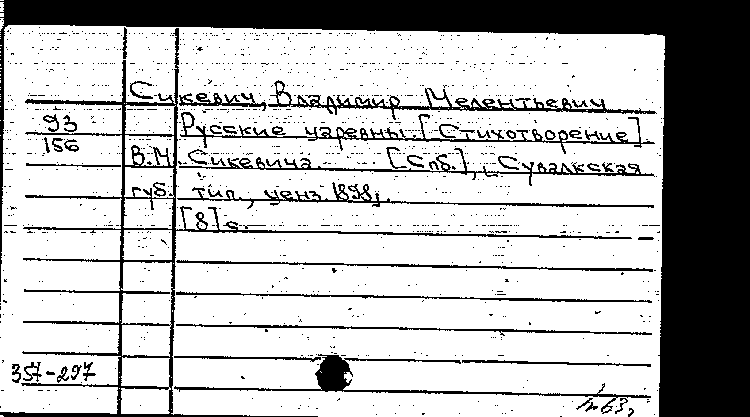 Сикевич, Владимир Мелентьевич
93 Русские царевны. [Стихотворение]
156 В.М. Сикевича. [Спб.], Сувалкская
губ. тип., ценз. 1898.
[8] с.
357-297